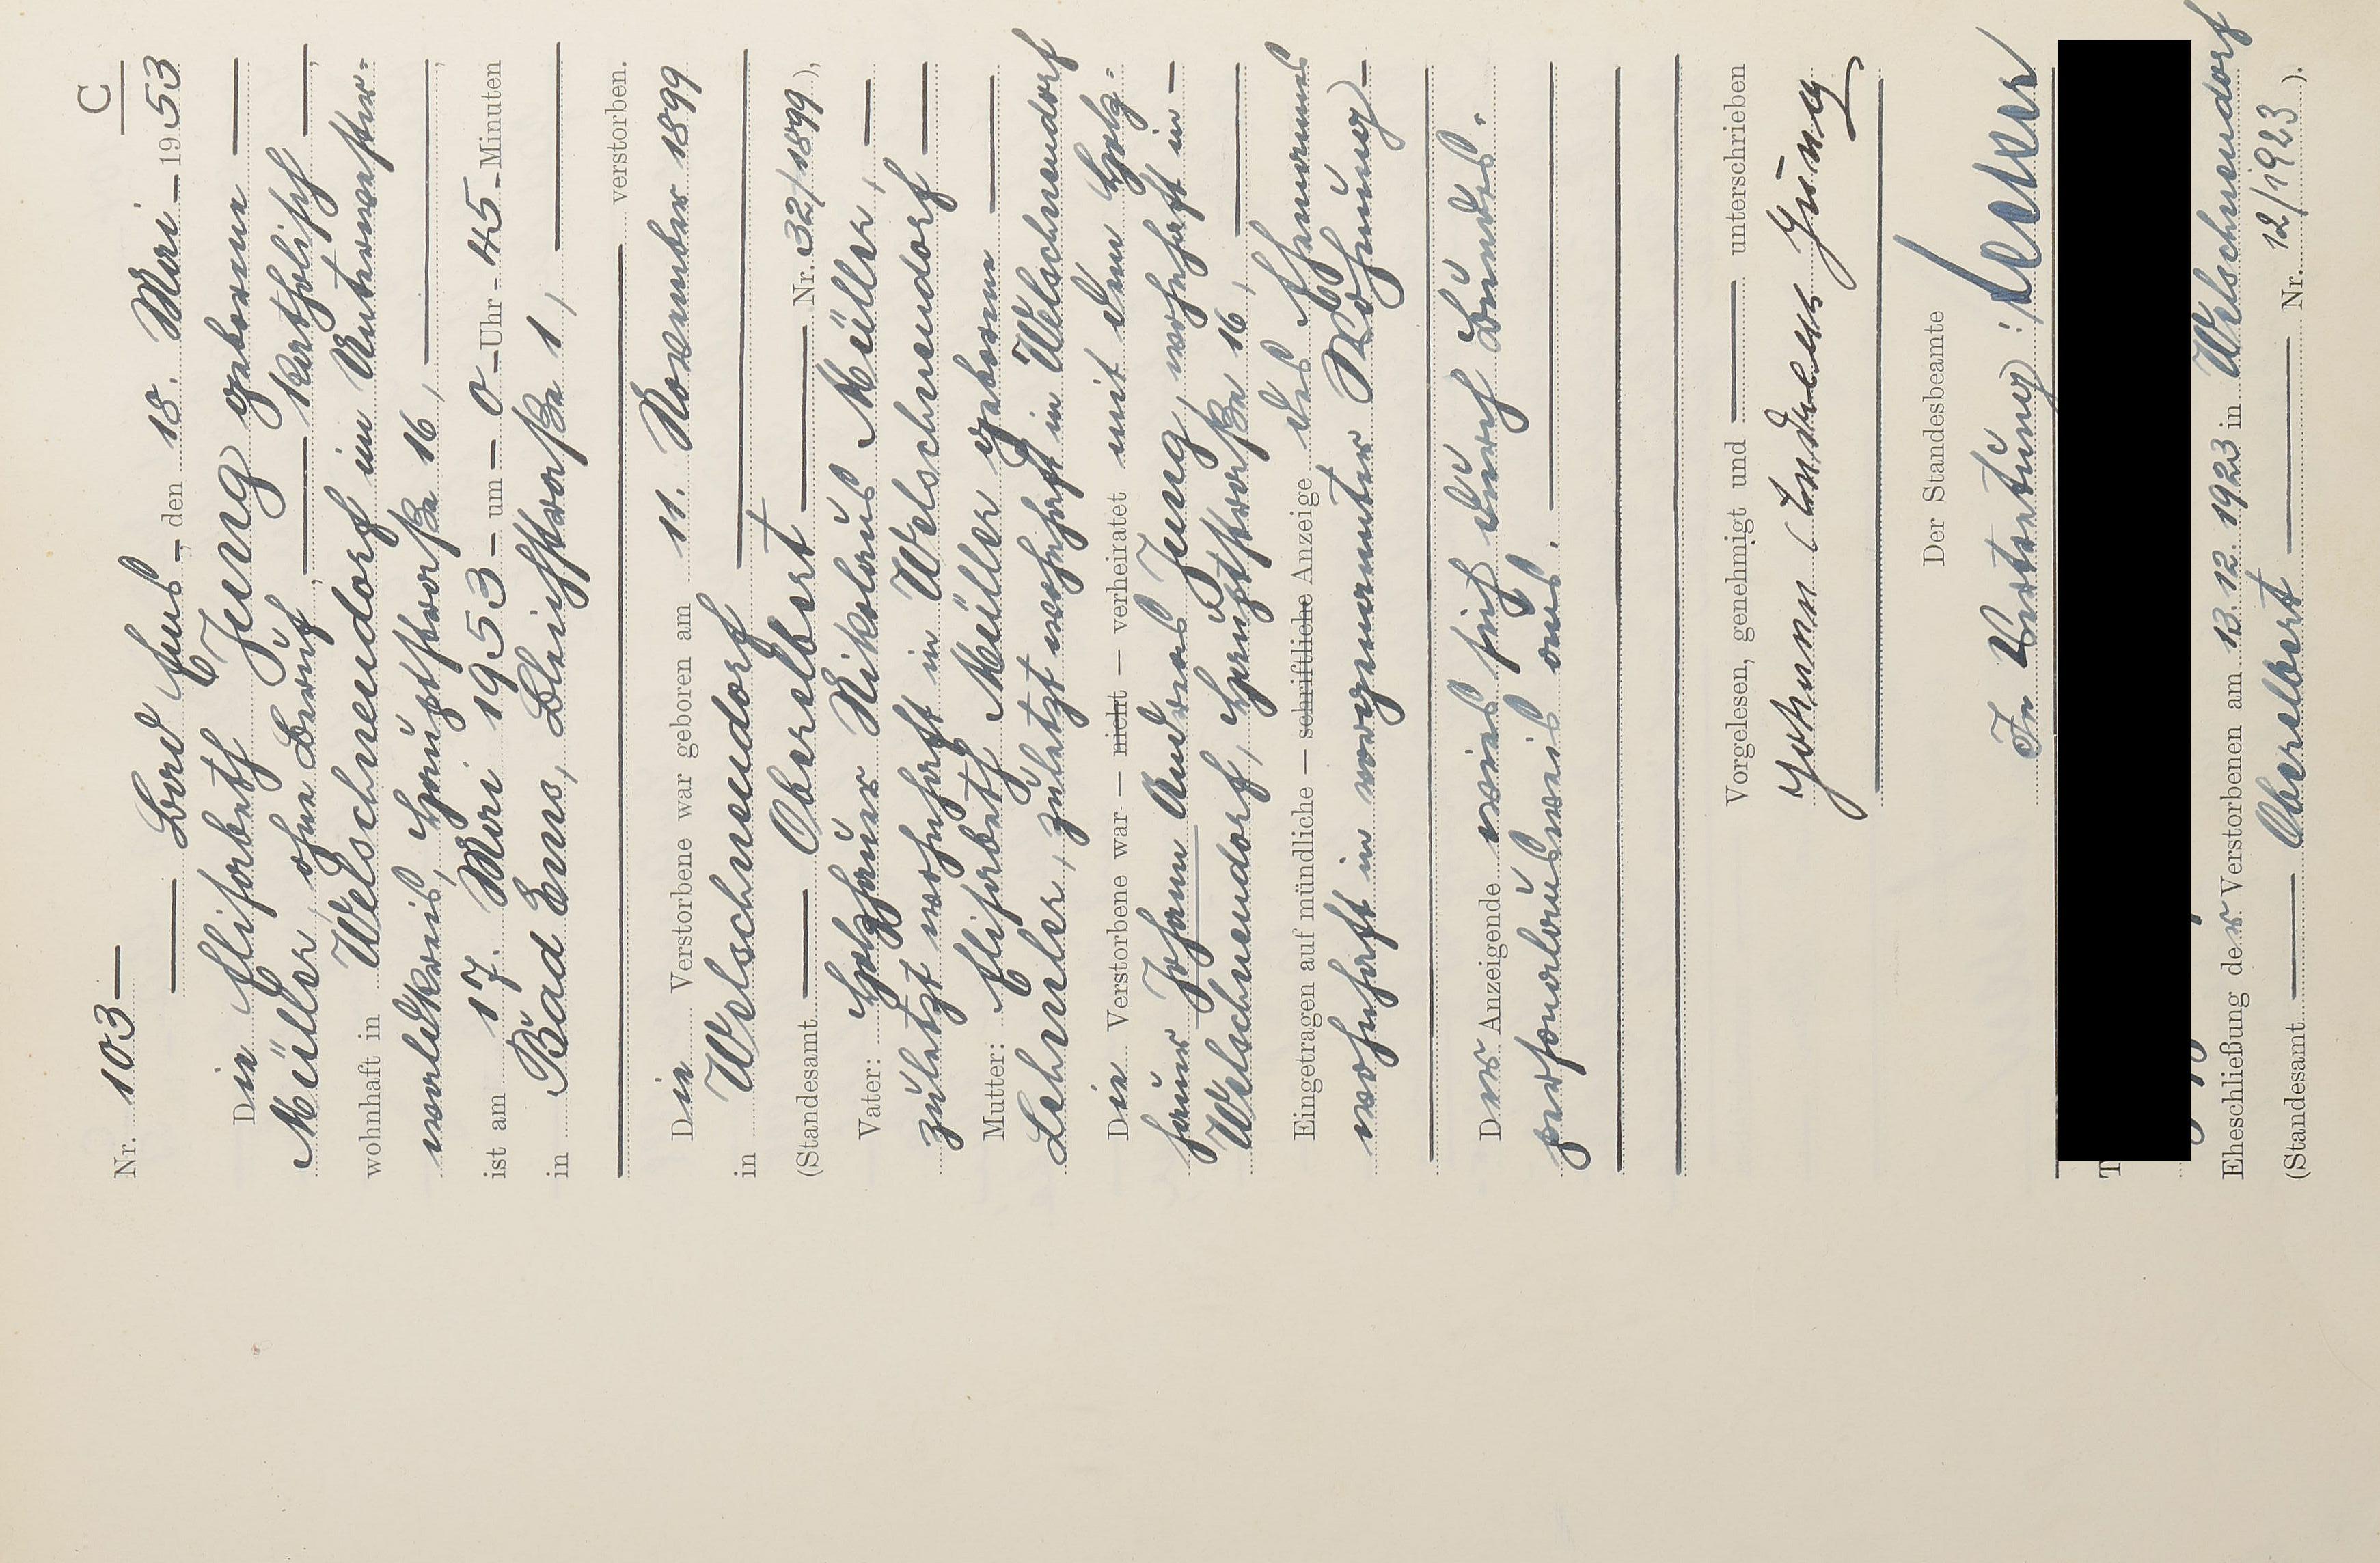 C
Nr. 103
Bad Ems, den 18. Mai 1953
Die Elisabeth Jung geborene
Müller, ohne Beruf, katholisch,
wohnhaft in Welschneudorf im Unterwester-
waldkreis, Hauptstraße 16,
ist am 17. Mai 1953 um 0 Uhr 45 Minuten
in Bad Ems, Bleichstraße 1,
verstorben.
Die Verstorbene war geboren am 11. November 1899
in Welschneudorf
(Standesamt Oberelbert Nr. 32/1899),
Vater: Holzhauer Nikolaus Müller,
zuletzt wohnhaft in Welschneudorf
Mutter: Elisabeth Müller geborene
Lehmler, zuletzt wohnhaft in Welschneudorf
Die Verstorbene war — nicht — verheiratet mit dem Holz-
hauer Johann Andreas Jung, wohnhaft in
Welschneudorf, Hauptstraße 16,
Eingetragen auf mündliche — schriftliche Anzeige des Ehemannes
wohnhaft in vorgenannter Wohnung
Der Anzeigende wies sich durch Bundes-
personalausweis aus.
Vorgelesen, genehmigt und unterschrieben
Johann Andreas Jung
Der Standesbeamte
In Vertretung:
T
Eheschließung der Verstorbenen am 13.12.1923 in Welschneudorf
(Standesamt Oberelbert Nr. 12/1923).